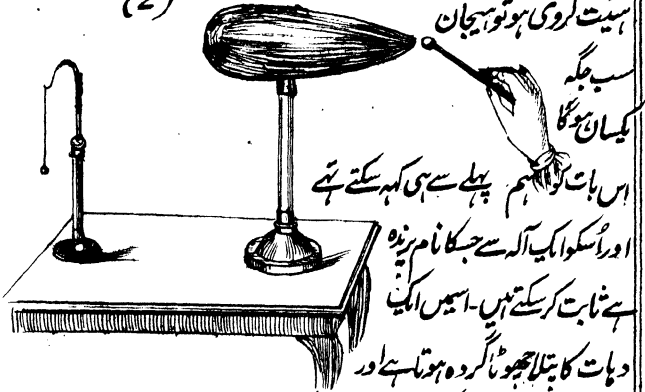 (2)
ہئیت کروی ہو تو ہیجان
سب جگہ
یکساں ہوگا
اس بات کو ہم پہلے سے ہی کہہ سکتے تھے
اور اُسکو ایک آلہ سے جسکا نام پرندہ
ہے ثابت کر سکتے ہیں۔ اسمیں ایک
دہات کا پتلا چھوٹا گردہ ہوتا ہے اور